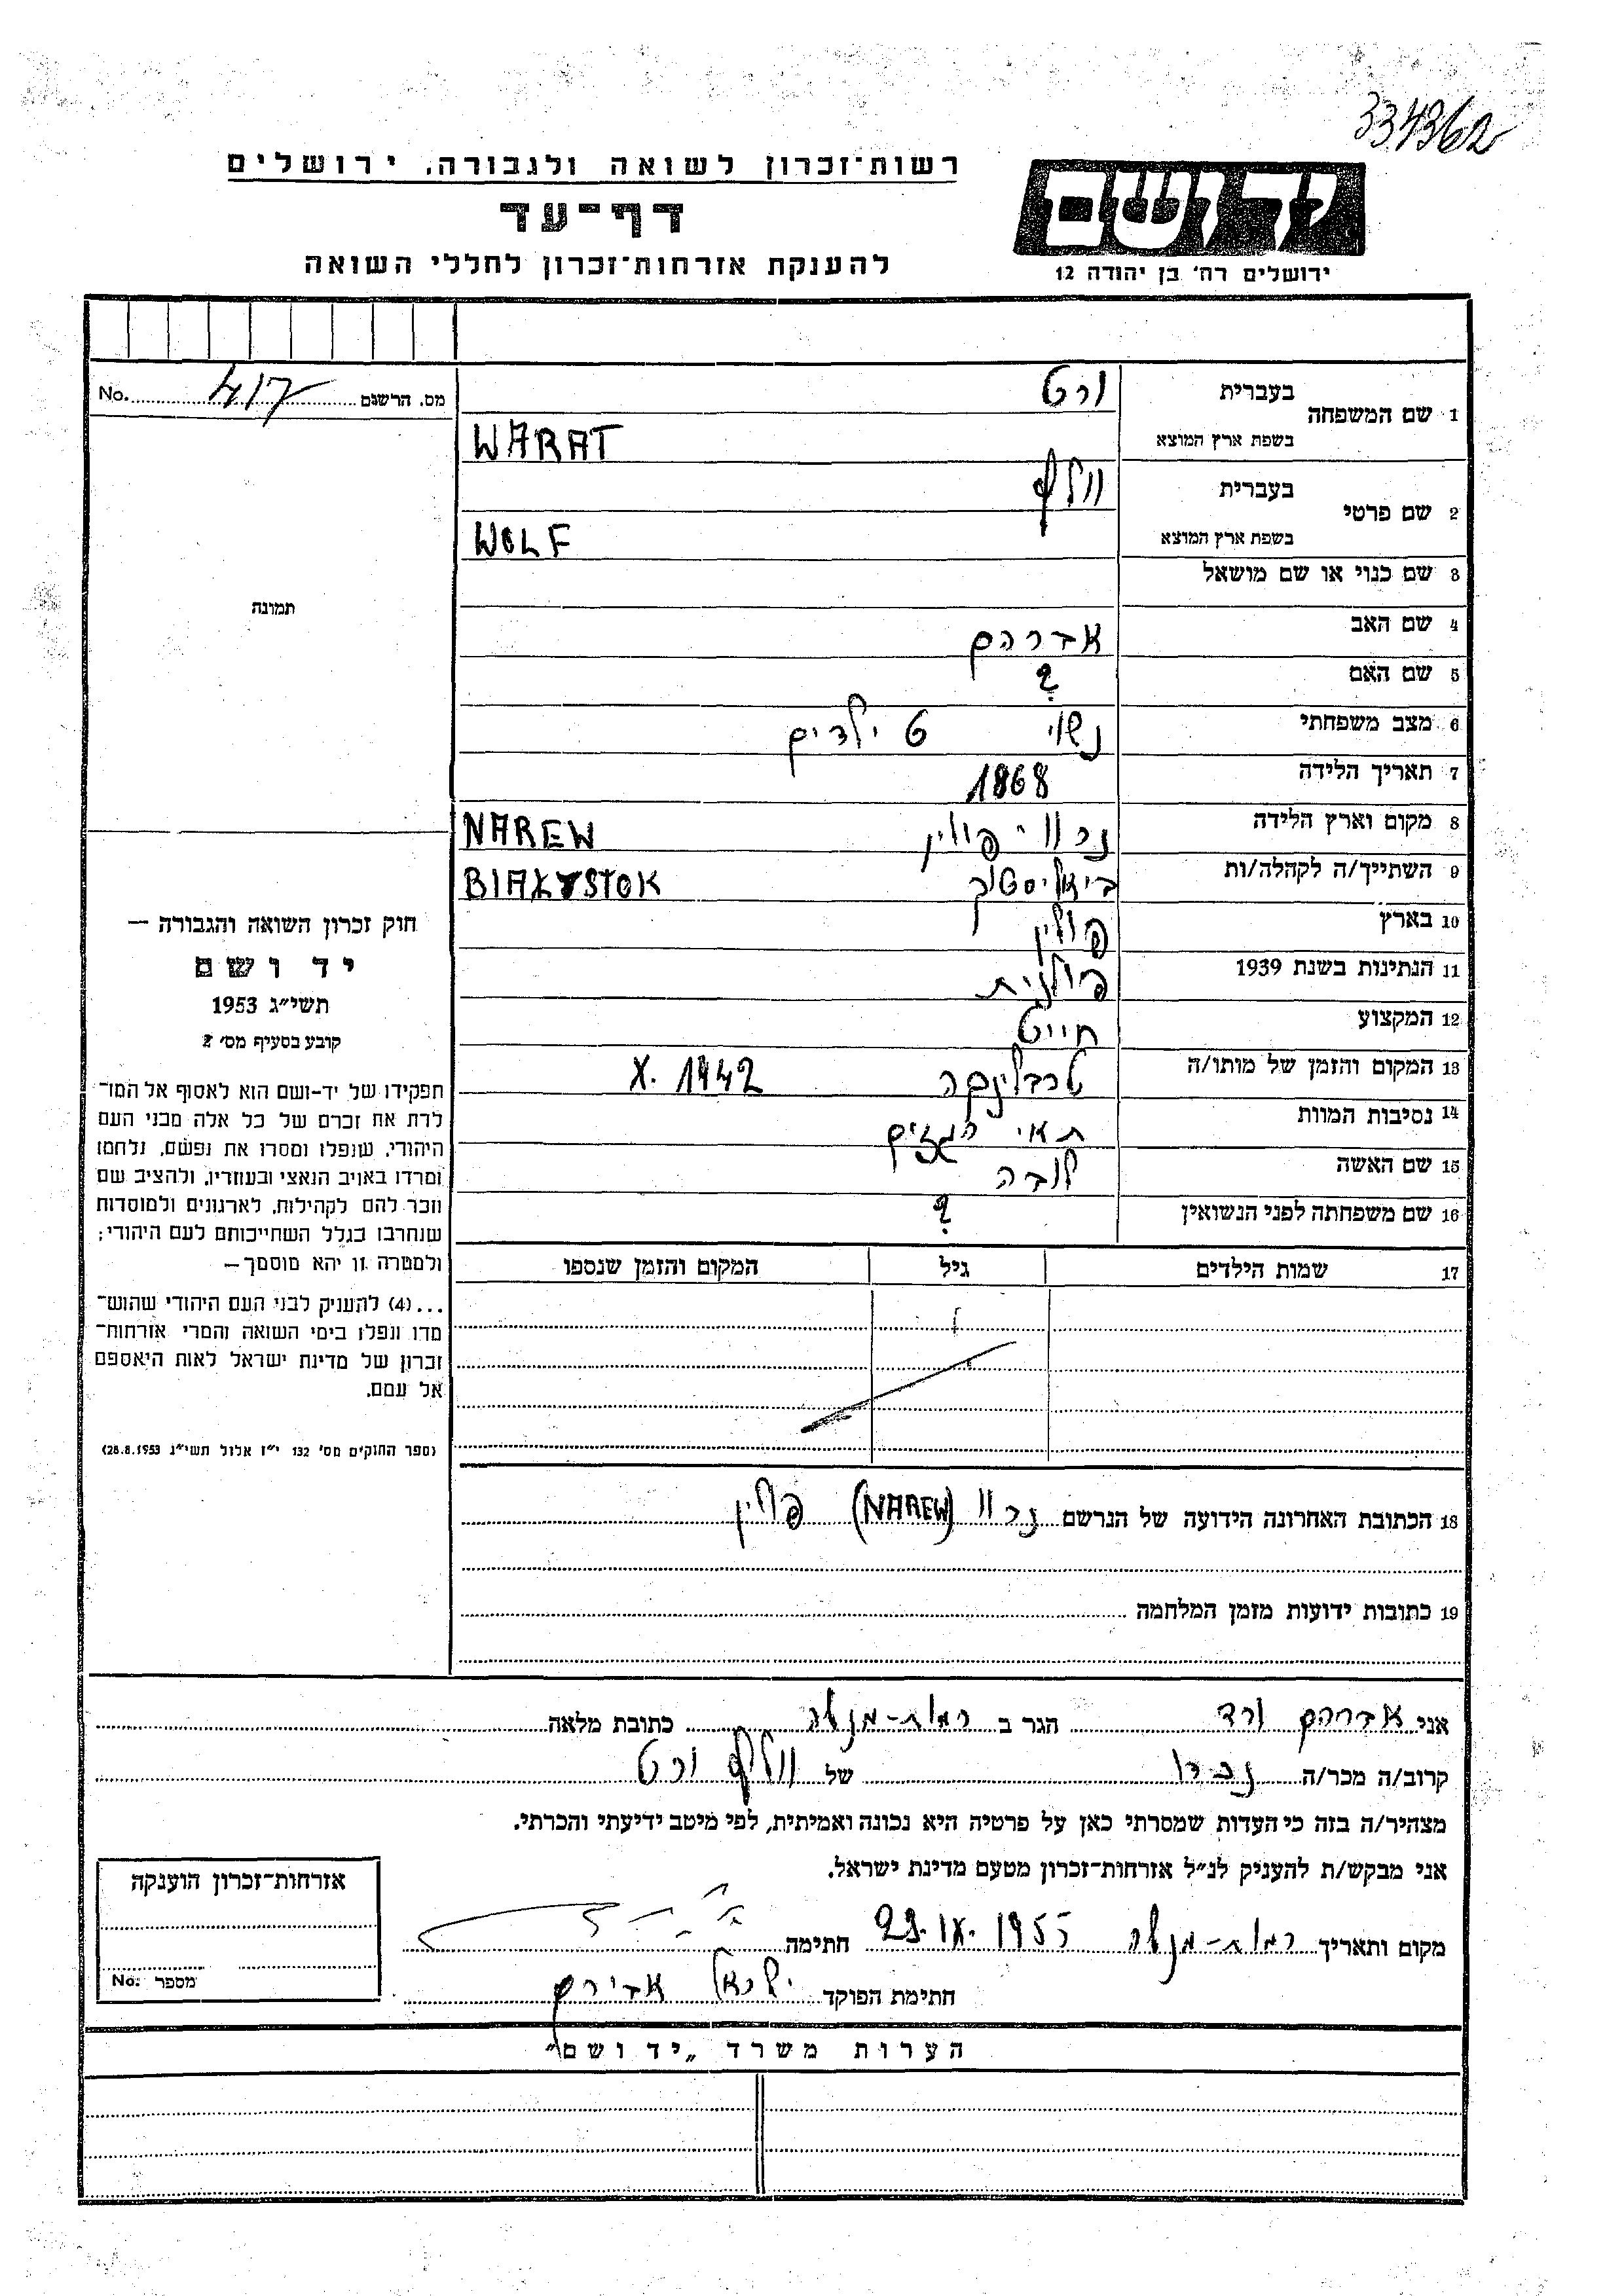 334362
רשות־זכרון לשואה ולגבורה, ירושלים
דף־עד
להענקת אזרחות־זכרון לחללי השואה
יד ושם
ירושלים רח' בן יהודה 12
מס. הרשום 417 No.
1 שם המשפחה
בעברית ורט
בשפת ארץ המוצא WARAT
2 שם פרטי
בעברית וולף
בשפת ארץ המוצא WOLF
3 שם כנוי או שם מושאל
4 שם האב אברהם
5 שם האם ?
6 מצב משפחתי נשוי 6 ילדים
7 תאריך הלידה 1868
8 מקום וארץ הלידה נרוו - פולין NAREW
9 השתייך/ה לקהלה/ות ביאליסטוק BIAŁYSTOK
10 בארץ פולין
11 הנתינות בשנת 1939 פולנית
12 המקצוע חייט
13 המקום והזמן של מותו/ה טרבלינקה X. 1942
14 נסיבות המוות תאי הגזים
15 שם האשה
16 שם משפחתה לפני הנשואין ?
17 שמות הילדים גיל המקום והזמן שנספו
18 הכתובת האחרונה הידועה של הנרשם נרוו (NAREW) פולין
19 כתובות ידועות מזמן המלחמה
תמונה
חוק זכרון השואה והגבורה —
יד ושם
תשי״ג 1953
קובע בסעיף מס' 2
תפקידו של יד-ושם הוא לאסוף אל המו־
לדת את זכרם של כל אלה מבני העם
היהודי, שנפלו ומסרו את נפשם, נלחמו
ומרדו באויב הנאצי ובעוזריו, ולהציב שם
וזכר להם לקהילות, לארגונים ולמוסדות
שנחרבו בגלל השתייכותם לעם היהודי;
ולמטרה זו יהא מוסמך —
...(4) להעניק לבני העם היהודי שהוש־
מדו ונפלו בימי השואה והמרי אזרחות־
זכרון של מדינת ישראל לאות היאספם
אל עמם.
(ספר החוקים מס' 132 י״ז אלול תשי״ג 28.8.1953)
אני אברהם ורד הגר ב רמות-מנשה כתובת מלאה
קרוב/ה מכר/ה נכדו של וולף ורט
מצהיר/ה בזה כי העדות שמסרתי כאן על פרטיה היא נכונה ואמיתית, לפי מיטב ידיעתי והכרתי.
אני מבקש/ת להעניק לנ״ל אזרחות-זכרון מטעם מדינת ישראל.
מקום ותאריך רמות-מנשה 29. IX. 1955 חתימה
חתימת הפוקד ישראל אבירם
אזרחות־זכרון הוענקה
מספר No:
הערות משרד „יד ושם”